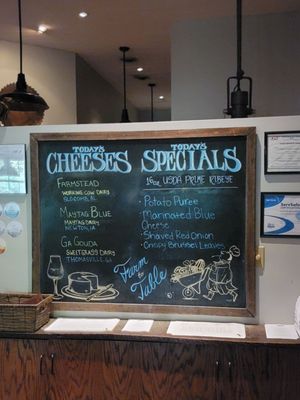 TODAY'S
CHEESES
FARMSTEAD
WORKING COW DAIRY
SLOCOMB, AL
MAYTAG BLUE
MAYTAG DAIRY
NEWTON, IA
GA GOUDA
SWEETGRASS DAIRY
THOMASVILLE, GA
TODAY'S
SPECIALS
16oz USDA PRIME RIBEYE
· Potato Puree
· Marinated Blue
Cheese
· Shaved Red Onion
· Crispy Brussel Leaves
Farm
to
Table